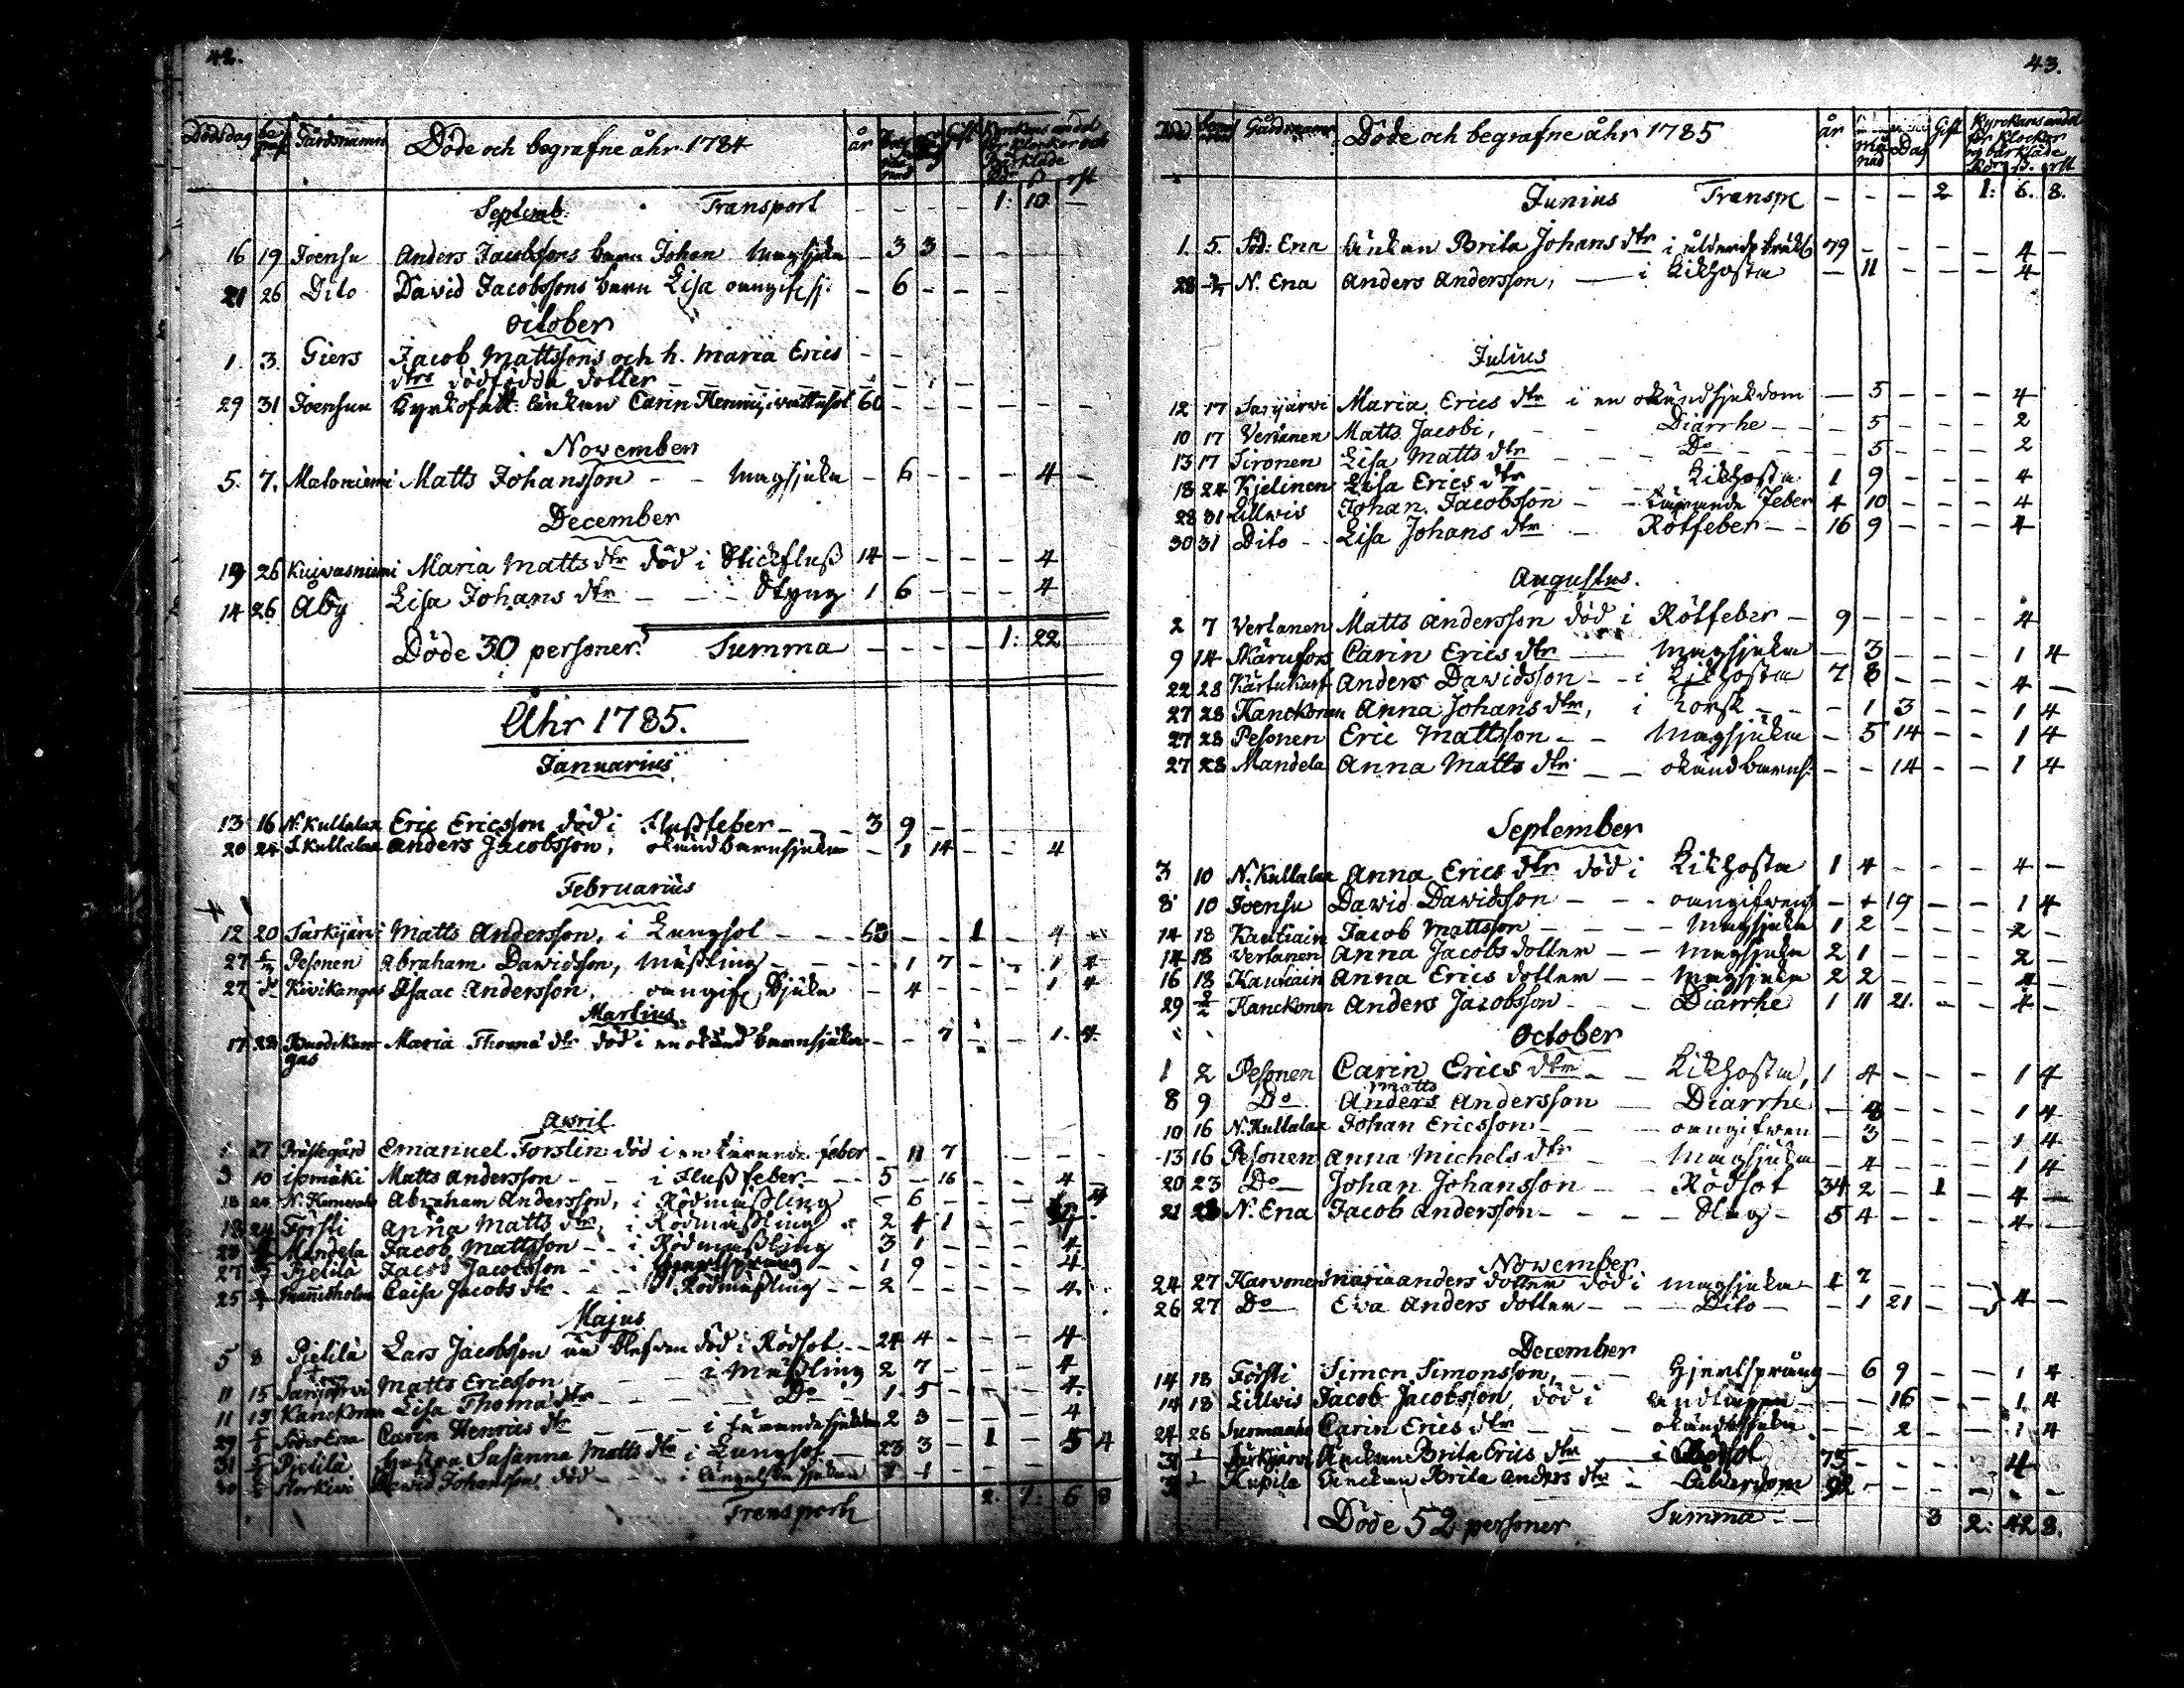 42.
Dödsdag be graf Gårdsnamn Döde och begrafne åhr 1784 år Gift Kyrkans andel för klockor och Bårkläde
Septemb. Transport - - - - 1: 10 -
16 19 Joensu Anders Jacobssons barn Johan Magsjuka - 3 3 - - -
21 26 Dito David Jacobssons barn Lisa oangif sj. - 6 - - -
October
1. 3. Giers Jacob Mattssons och h. Maria Erics - -
dtrs dödfödda dotter - - - - - - -
29 31 Joensuu Enkan Carin 60 - - - - - -
November
5. 7. Matoniemi Matts Johansson - - Magsjuka - 6 - - - 4 -
December
19 26 Kuivasniemi Maria Matts dtr död i Stickfluß 14 - - - - 4
14 26 Åby Lisa Johans dtr - - - Styng 1 6 - - - 4
Döde 30 personer. Summa - - - - 1: 22
Åhr 1785.
Januarius
13 16 N. Kullalax Eric Ericsson död i Flußfeber - - - 3 9 - -
20 24 S. Kullalax Anders Jacobsson, okänd barnsjuka - 1 14 - - 4
Februarius
12 20 Särkijärvi Matts Andersson, i Lungsot - - - 63 - - 1 - 4
27 Pesonen Abraham Davidsson, Mäßling - - - - 1 7 - - 1 4
27 do Kivikangas Isaac Andersson, oangif. Sjuka - 4 - - - 1 4
Martius
17 22 Maria Thoma dtr död i en okänd barnsjuka - - 7 - - 1. 4.
gas
April
1 17 Prästegård Emanuel Forslin död i en tärande feber - 11 7 - - -
3 10 ipmäki Matts Andersson - - i Flußfeber - - - 5 - 16 - - 4 -
18 24 Abraham Andersson, i Rödmäßling - 6 - - -
18 24 Försti Anna Matts dtr, i Rödmäßling 2 4 1 - -
Mandela Jacob Mattsson - - i Rödmäßling 3 1 - - - 4
27 Pjetilä Jacob Jacobsson - - i - - 1 9 - - - 4
25 Caisa Jacobs dtr - - - Rödmäßling - - 2 - - - - 4.
Majus
5 8 Pjetilä Lars Jacobsson död i Rödsot - - 24 4 - - - 4
11 15 Särkijärvi Matts Ericsson - - - i Mäßling 2 7 - - - 4
11 15 Kanckonen Lisa Thoma dtr - - - - Do - 1. 5 - - - 4.
29 Söder Ena Carin Henrics dtr - - - i tärande sjukdom 2 3 - - - 4
31 Pjetilä hustru Susanna Matts dtr i Lungsot - 23 3 - 1 - 5 4
30 Storkivi David Johansson, död - - i Engelska sjukan 1 1 - - - -
Transport 2. 1: 6 8
43.
Gårdsnamn Döde och begrafne åhr 1785 år månad Dag Gift Kyrckans andel för klockor och bårkläde
Junius Transp - - - 2 1: 6. 8.
1. 5. Söd: Ena Enkan Brita Johans dtr i ålderdoms 79 - - - - 4 -
28 N. Ena Anders Andersson, - i Kikhosta - 11 - - - 4
Julius
12 17 Särjjärvi Maria Erics dtr i en okänd sjukdom - 5 - - - 4
10 17 Vertanen Matts Jacobi, - - Diarrhe - - - 5 - - - 2
13 17 Sironen Lisa Matts dtr - - - - Do - - - 5 - - - 2
18 24 Kjelinen Lisa Erics dtr - - - Kikhosta 1 9 - - - 4
28 31 Lillvis Johan Jacobsson - - tärande Feber 4 10 - - - 4
30 31 Dito - - Lisa Johans dtr - Rötfeber - - 16 9 - - - 4
Augustus.
2 7 Vertanen Matts Andersson död i Rötfeber - 9 - - - - 4
9 14 Skärufors Carin Erics dtr - Magsjuka - 3 - - - 1 4
22 28 Anders Davidsson - - i Kikhosta 7 8 - - - 4 -
27 28 Kanckonen Anna Johans dtr, i Torsk - - - 1 3 - - 1 4
27 28 Pesonen Eric Mattsson - - Magsjuka - 5 14 - - 1 4
27 28 Mandela Anna Matts dtr - - okänd barnsj. - - 14 - - 1 4
September
3 10 N. Kullalax Anna Erics dtr död i Kikhosta 1 4 - - - 4 -
8 10 Joensu David Davidsson - - - oangifven - + 19 - - 1 4
14 18 Kautiain Jacob Mattsson - - - - Magsjuka 1 2 - - - 2 -
14 18 Vertanen Anna Jacobs dotter - - Magsjuka 2 1 - - - 2 -
16 18 Kautiain Anna Erics dotter - - Magsjuka 2 2 - - - 4 -
29 2/2 Kanckonen Anders Jacobsson - - - Diarrhe 1 11 21. - - 4 -
October
1 2 Pesonen Carin Erics dtr - - Kikhosta, 1 4 - - - 1 4
Matts
8 9 Do Anders Andersson - Diarrhe - 4 - - - 1 4
10 16 N. Kullalax Johan Ericsson - - - oangifven - 3 - - - 1 4
13 16 Pesonen Anna Michels dtr - - Magsjuka - 4 - - - 1 4
20 23 Do Johan Johansson - - Rödsot 34 2 - 1 - 4 -
21 23 N. Ena Jacob Andersson - - - - Slag - 5 4 - - - 4 -
November
24 27 Karvonen Maria Anders dotter död i Magsjuka - 1 2
26 27 Do Eva Anders dotter - - - Dito - - 1 21 - - } 4 -
December
14 18 Försti Simon Simonsson, - - Hjertsprång - 6 9 - - 1 4
14 18 Lillvis Jacob Jacobsson, död i - - 16 - - 1 4
24 26 Surmanaho Carin Erics dtr - - - okänd sjuka - - 2 - - 1 4
31 Särkijärvi Enkan Brita Erics dtr - i 75 - - - - 4
31 Kupila Enkan Brita Anders dtr - Ålderdom 92 - - - - - -
Döde 52 personer Summa - - 3 2: 42 8.